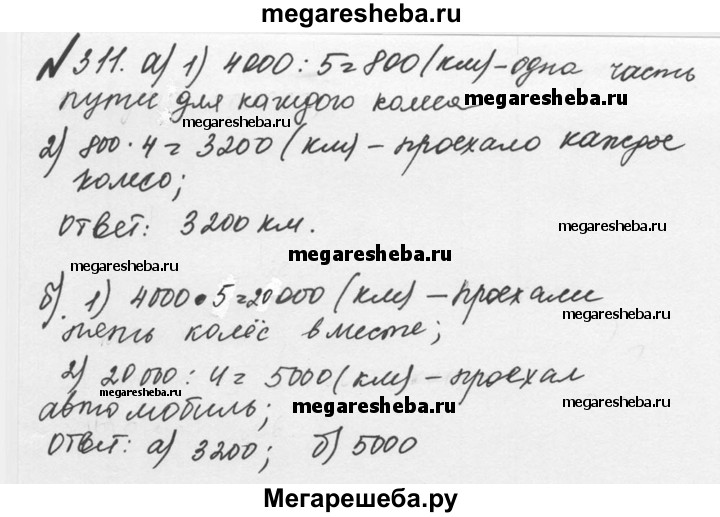 megaresheba.ru
№311. а) 1) 4000 : 5 = 800 (км) – одна часть
пути для каждого колеса megaresheba.ru
megaresheba.ru megaresheba.ru
2) 800 · 4 = 3200 (км) – проехало каждое
колесо;
ответ: 3200 км.
megaresheba.ru
megaresheba.ru megaresheba.ru
б) 1) 4000 • 5 = 20000 (км) – проехали
пять колёс вместе; megaresheba.ru
2) 20000 : 4 = 5000 (км) – проехал
megaresheba.ru
автомобиль; megaresheba.ru megaresheba.ru
ответ: а) 3200; б) 5000
Мегарешеба.ру